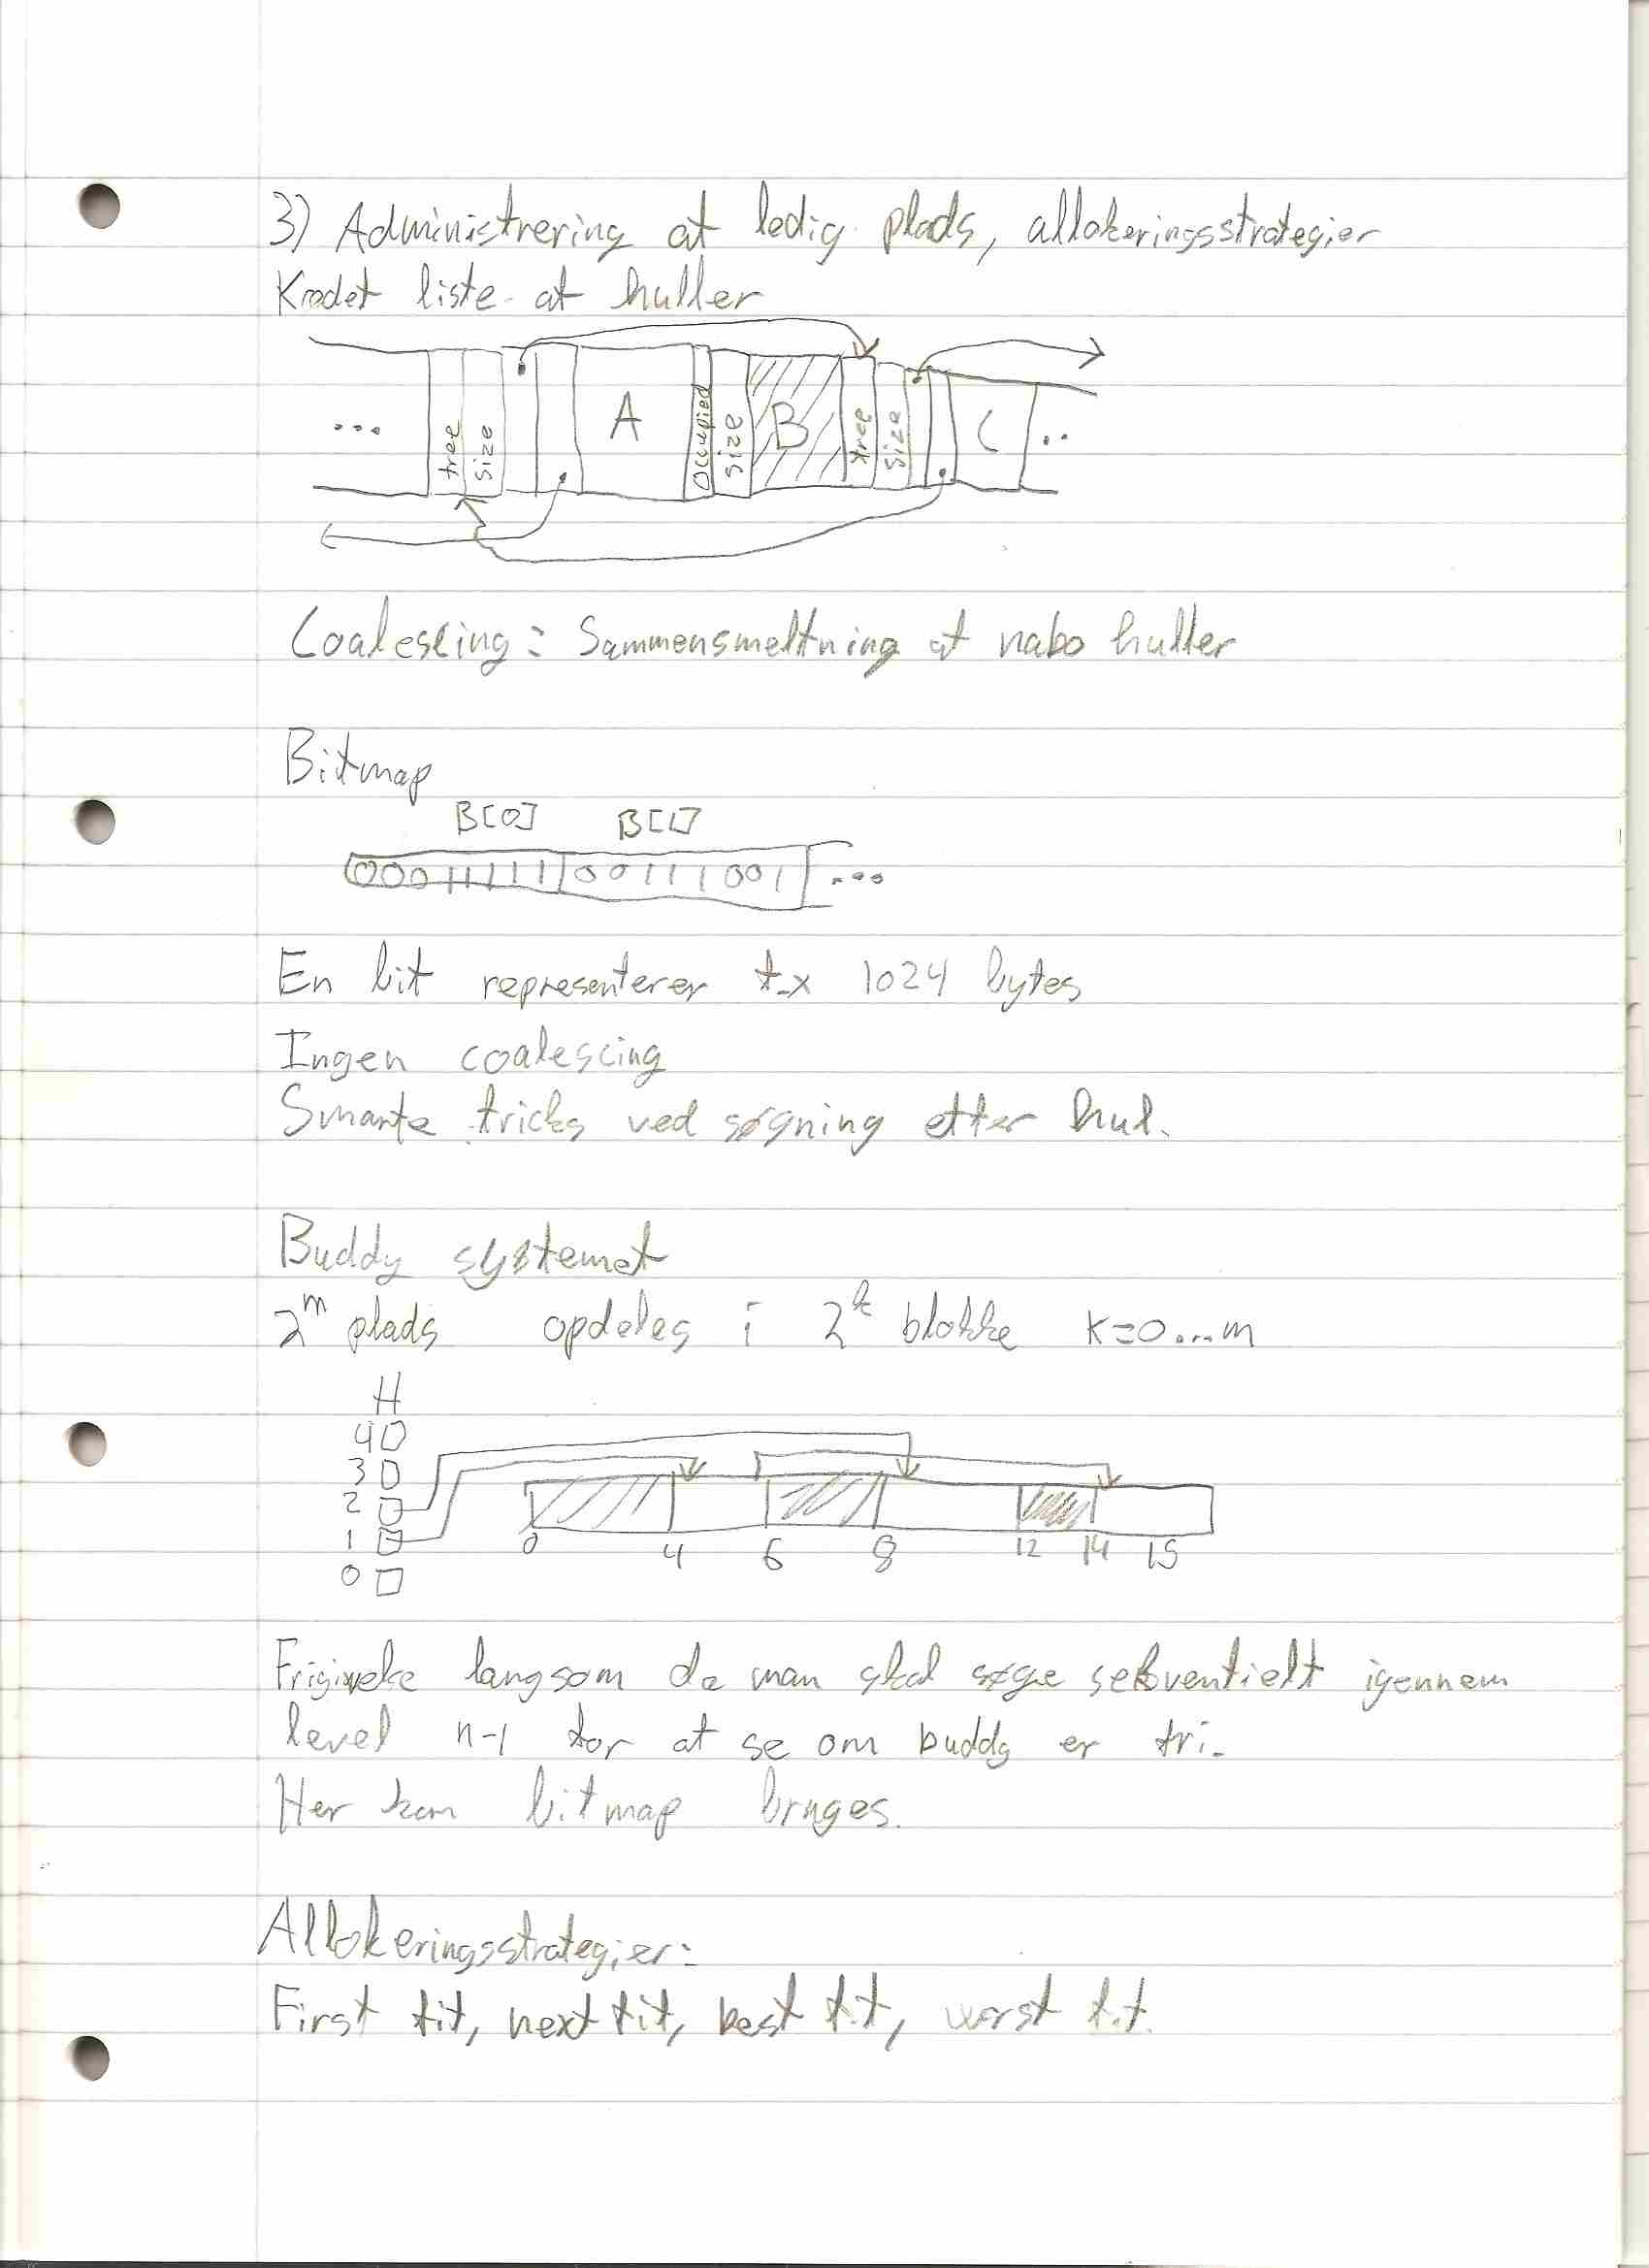 3) Administrering af ledig plads, allokeringsstrategier
Kædet liste af huller
... free size A occupied size B free size C ..
Coalescing: Sammensmeltning af nabo huller
Bitmap
B[0] B[1]
00011111 00111001 ...
En bit representerer f.x 1024 bytes
Ingen coalescing
Smarte tricks ved søgning efter hul.
Buddy systemet
2^m plads opdeles i 2^k blokke k=0...m
H
4
3
2
1
0
0 4 6 8 12 14 15
Frigivelse langsom da man skal søge sekventielt igennem
level n-1 for at se om buddy er fri.
Her kan bitmap bruges.
Allokeringsstrategier:
First fit, next fit, best fit, worst fit.